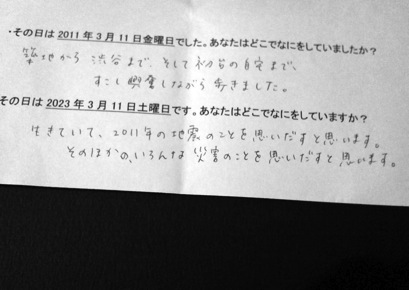 ・その日は2011年3月11日金曜日でした。あなたはどこでなにをしていましたか？
築地から渋谷まで、そして初台の自宅まで、
すこし興奮しながら歩きました。
その日は2023年3月11日土曜日です。あなたはどこでなにをしていますか？
生きていて、2011年の地震のことを思いだすと思います。
そのほかの、いろんな災害のことを思いだすと思います。